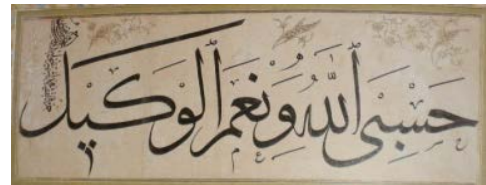 حَسْبِيَ ٱللّٰهُ وَنِعْمَ ٱلْوَكِيْل